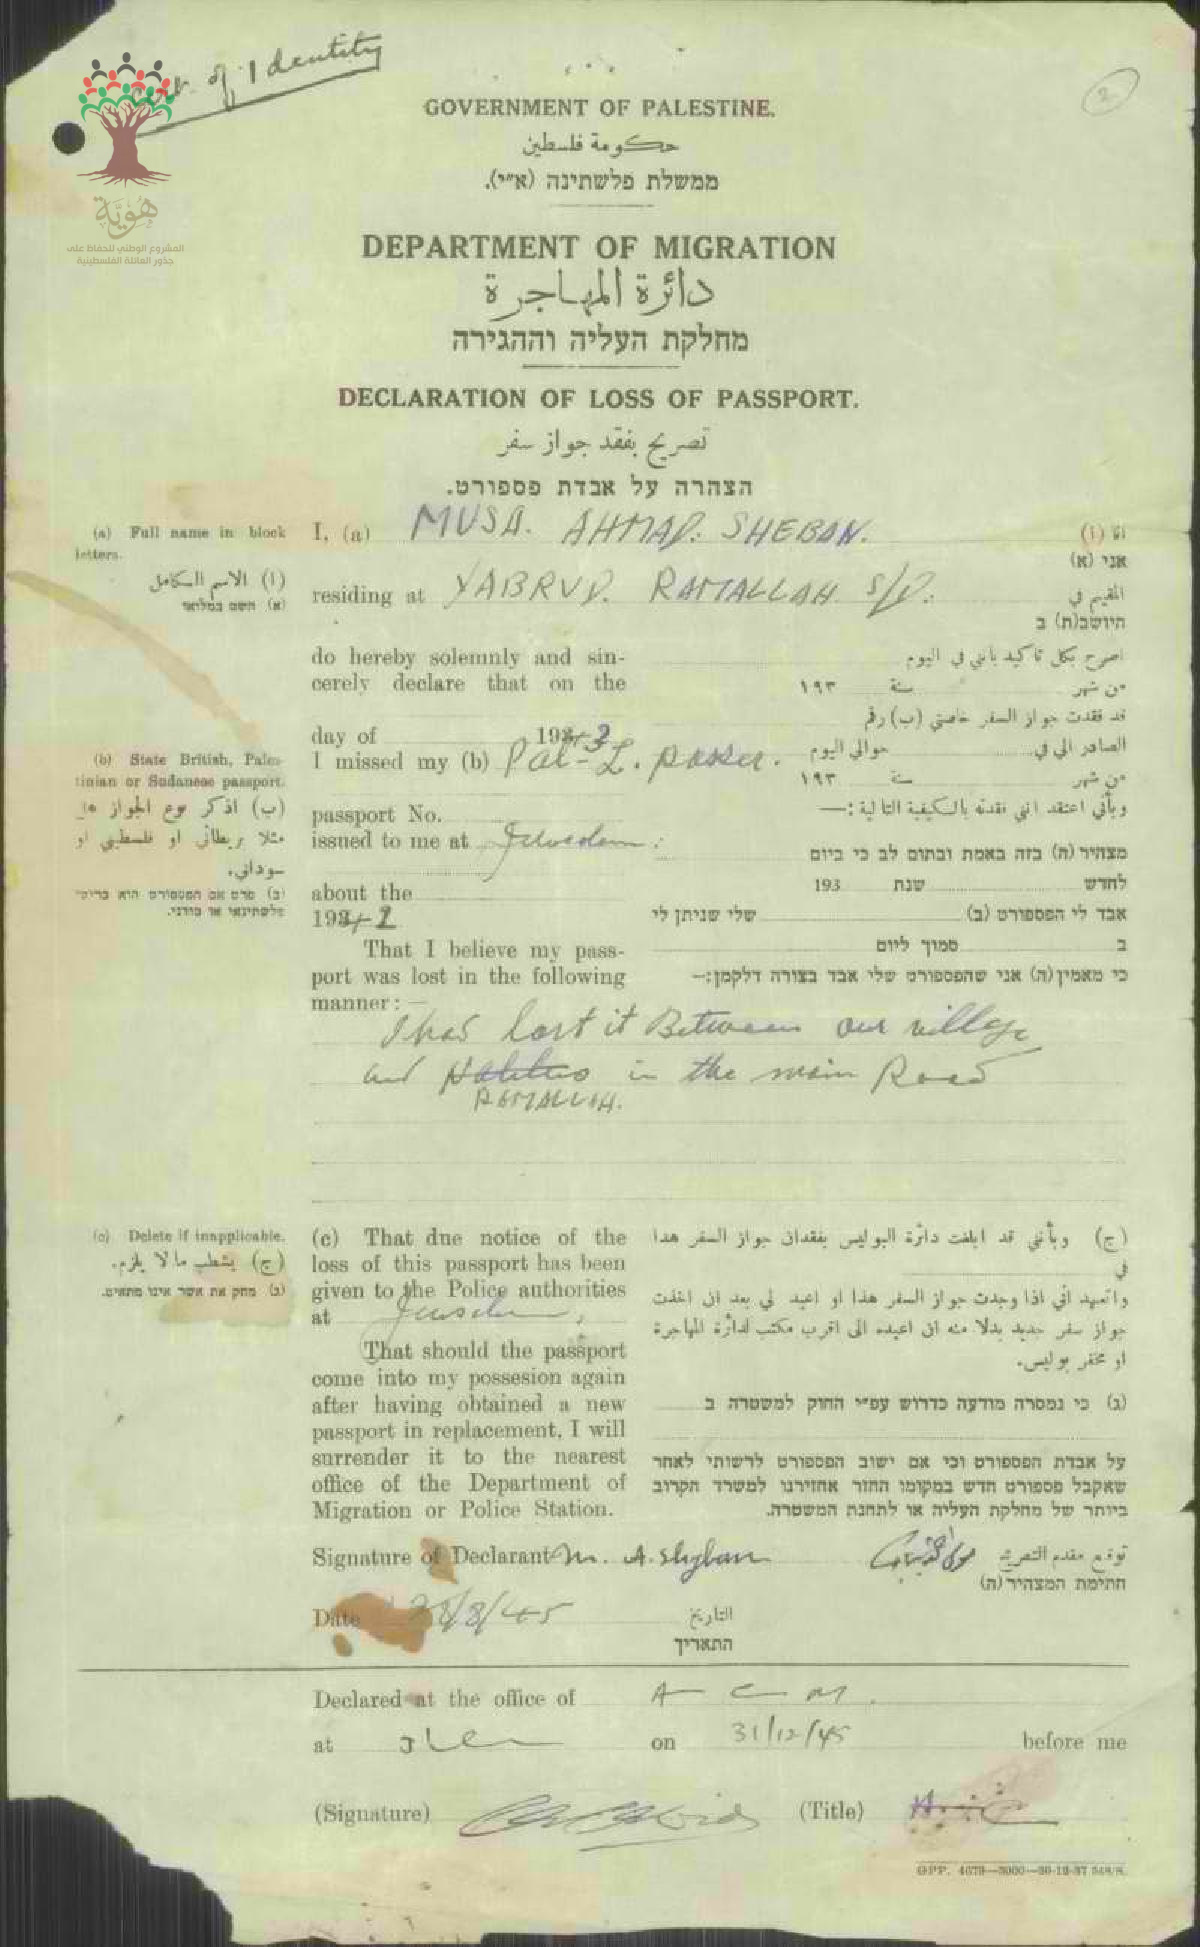 of Identity
2
هوية
المشروع الوطني للحفاظ على
جذور العائلة الفلسطينية
GOVERNMENT OF PALESTINE.
حكومة فلسطين
ממשלת פלשתינה (א״י).
DEPARTMENT OF MIGRATION
دائرة المهاجرة
מחלקת העליה וההגירה
DECLARATION OF LOSS OF PASSPORT.
تصريح بفقد جواز سفر
הצהרה על אבדת פספורט.
(a) Full name in block
letters.
(ا) الاسم الكامل
(א) השם במלואו
I, (a) MUSA. AHMAD. SHEBAN.
انا (ا)
אני (א)
residing at YABRUD. RAMALLAH S/D.
المقيم في
היושב(ת) ב
do hereby solemnly and sin-
cerely declare that on the
day of 1943
I missed my (b) Pal-
passport No.
issued to me at
about the
1942
That I believe my pass-
port was lost in the following
manner:—
اصرح بكل تأكيد بأنني في اليوم
من شهر سنة ١٩٣
قد فقدت جواز السفر خاصتي (ب) رقم
الصادر الي في حوالي اليوم
من شهر سنة ١٩٣
وبأني اعتقد انني فقدته بالكيفية التالية:—
מצהיר (ה) בזה באמת ובתום לב כי ביום
לחדש שנת 193
אבד לי הפספורט (ב) שלי שניתן לי
ב סמוך ליום
כי מאמין (ה) אני שהפספורט שלי אבד בצורה דלקמן:—
(b) State British, Pales-
tinian or Sudanese passport.
(ب) اذكر نوع الجواز
مثلا بريطاني او فلسطيني او
سوداني.
(ב) פרט אם הפספורט הוא בריטי
פלשתינאי או סודני.
I had lost it Between our village
and in the main Road
RAMALLAH.
(c) Delete if inapplicable.
(ج) يشطب ما لا يلزم.
(ג) מחק את אשר אינו מתאים.
(c) That due notice of the
loss of this passport has been
given to the Police authorities
at
That should the passport
come into my possesion again
after having obtained a new
passport in replacement, I will
surrender it to the nearest
office of the Department of
Migration or Police Station.
(ج) وبأنني قد ابلغت دائرة البوليس بفقدان جواز السفر هذا
في
واتعهد اني اذا وجدت جواز السفر هذا او اعيد لي بعد ان اخذت
جواز سفر جديد بدلا منه ان اعيده الى اقرب مكتب لدائرة المهاجرة
او مخفر بوليس.
(ג) כי נמסרה מודעה כדרוש עפ״י החוק למשטרה ב
על אבדת הפספורט וכי אם ישוב הפספורט לרשותי לאחר
שאקבל פספורט חדש במקומו החזר אחזירנו למשרד הקרוב
ביותר של מחלקת העליה או לתחנת המשטרה.
Signature of Declarant M. A. Shyban
توقيع مقدم التصريح
חתימת המצהיר (ה)
Date 28/8/45
التاريخ
התאריך
Declared at the office of A C M.
at on 31/12/45 before me
(Signature) (Title)
GPP. 4679—3000—30-12-37